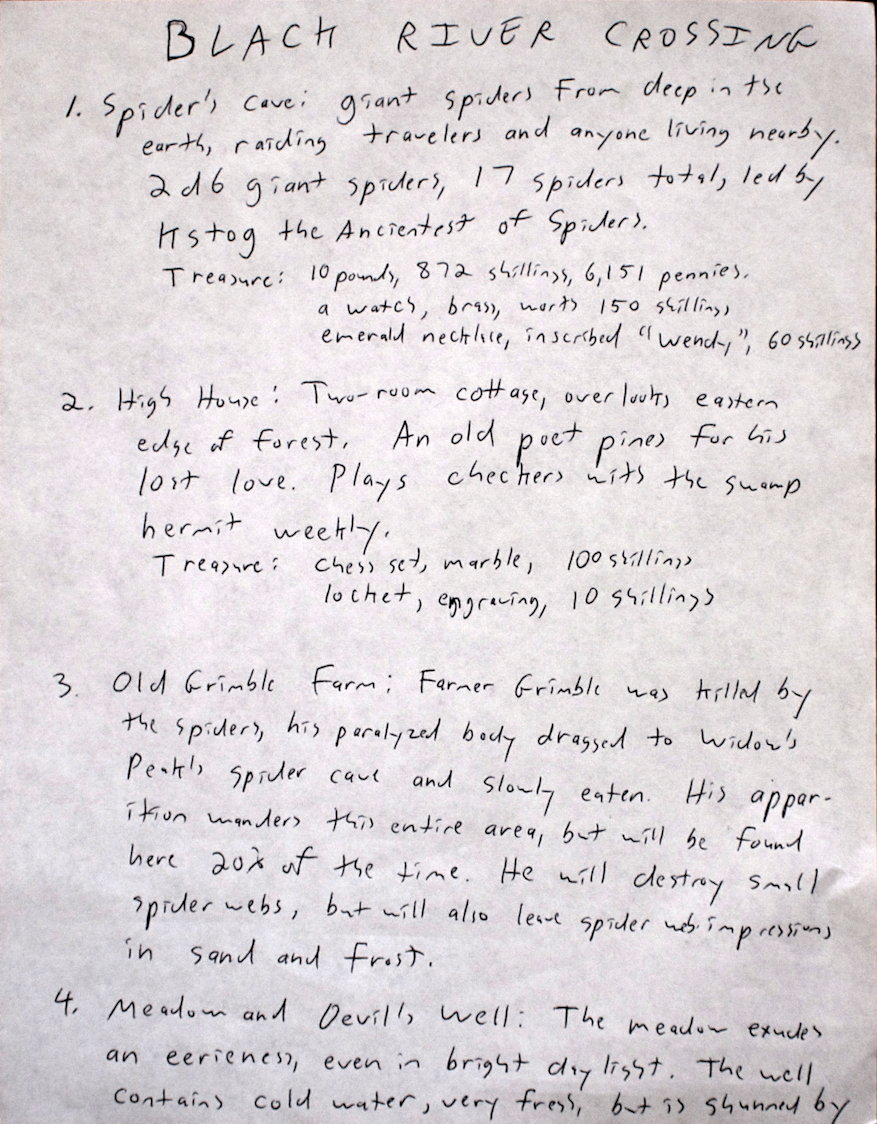 BLACK RIVER CROSSING
1. Spider's Cave: giant spiders from deep in the
earth, raiding travelers and anyone living nearby.
2d6 giant spiders, 17 spiders total, led by
Kstog the Ancientest of Spiders.
Treasure: 10 pounds, 872 shillings, 6,151 pennies.
a watch, brass, worth 150 shillings
emerald necklice, inscribed "Wendy", 60 shillings
2. High House: Two-room cottage, overlooks eastern
edge of forest. An old poet pines for his
lost love. Plays checkers with the swamp
hermit weekly.
Treasure: chess set, marble, 100 shillings
locket, engraving, 10 shillings
3. Old Grimble Farm: Farmer Grimble was killed by
the spiders, his paralyzed body dragged to Widow's
Peak's spider cave and slowly eaten. His appar-
ition wanders this entire area, but will be found
here 20% of the time. He will destroy small
spider webs, but will also leave spider web impressions
in sand and frost.
4. Meadow and Devil's Well: The meadow exudes
an eerieness, even in bright daylight. The well
contains cold water, very fresh, but is shunned by